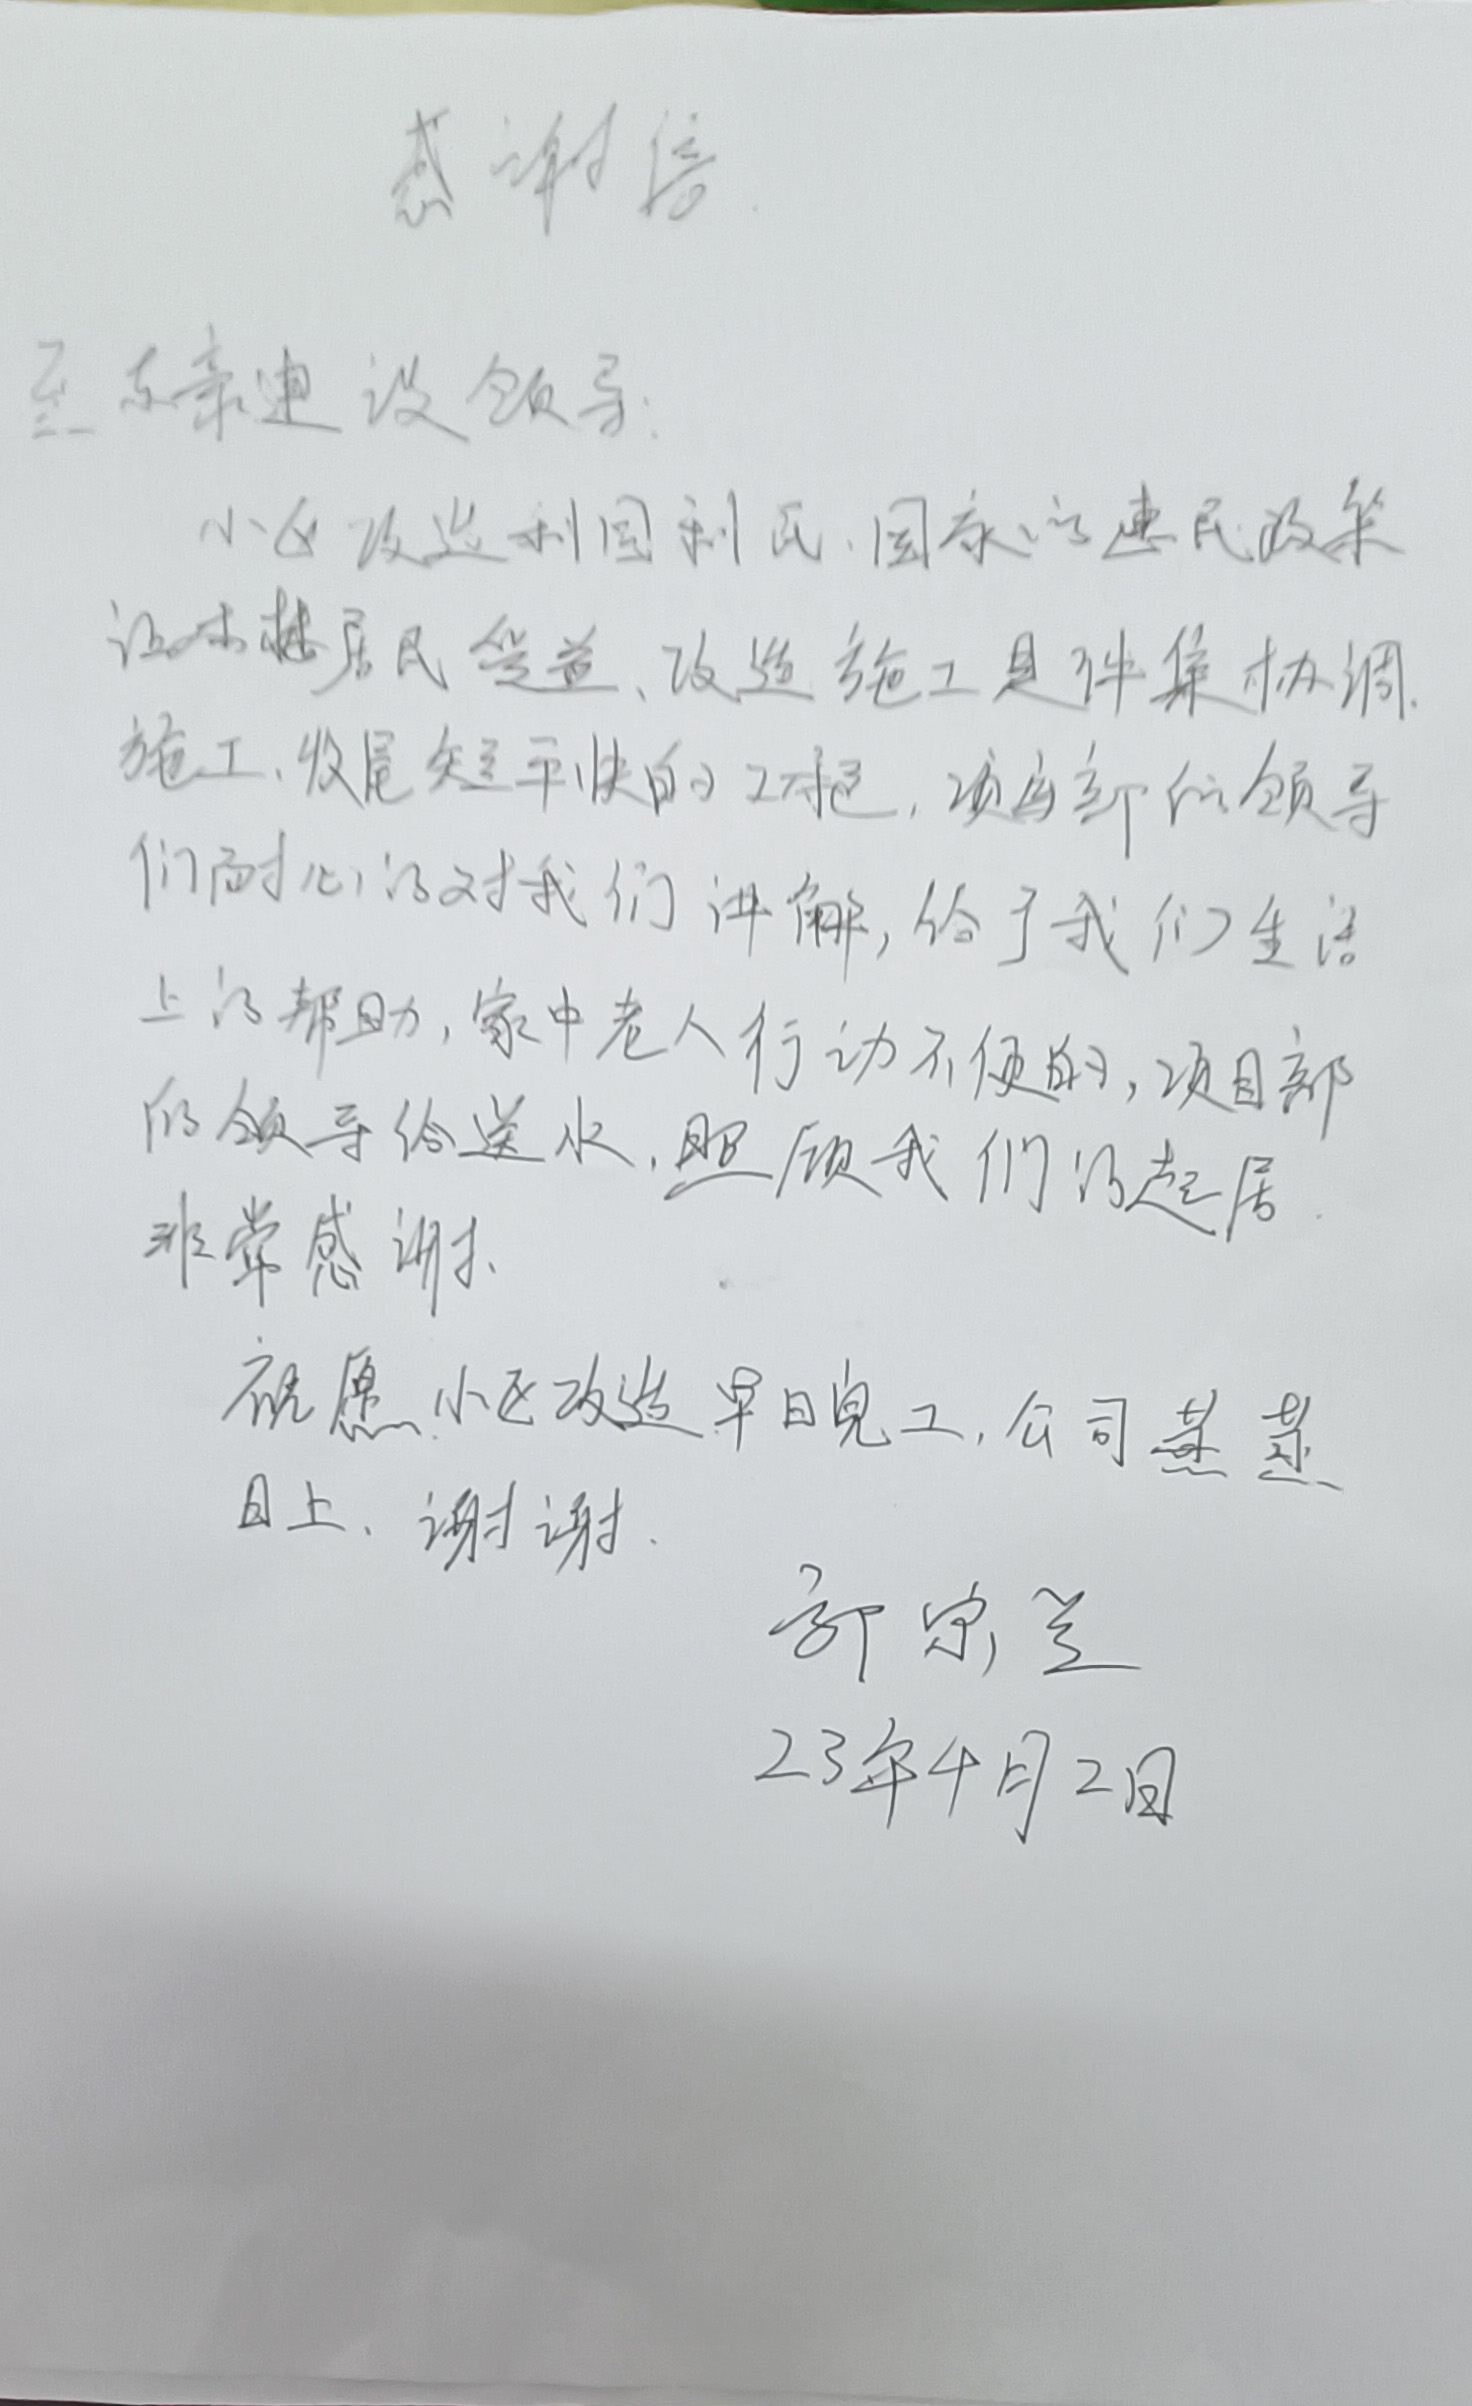 感谢信.
至东豪建设领导:
小区改造利国利民、国家的惠民政策
让本楼居民受益、改造施工是件集协调.
施工、收尾短平快的工程,项目部的领导
们耐心的对我们讲解,给了我们生活
上的帮助,家中老人行动不便的,项目部
的领导给送水,照顾我们的起居.
非常感谢、
祝愿小区改造早日完工,公司蒸蒸
日上、谢谢.
郭宗兰
23年4月2日